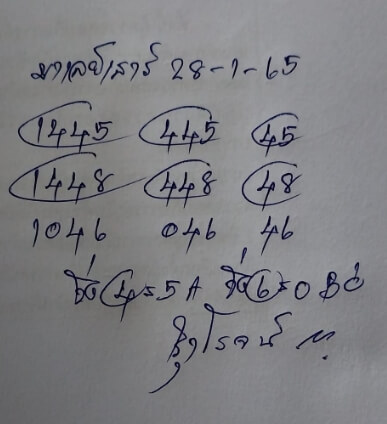 มาเลย์เสาร์ 28-1-65
1445 445 45
1448 448 48
1046 046 46
วิ่ง 4=5 A วิ่ง 6=0